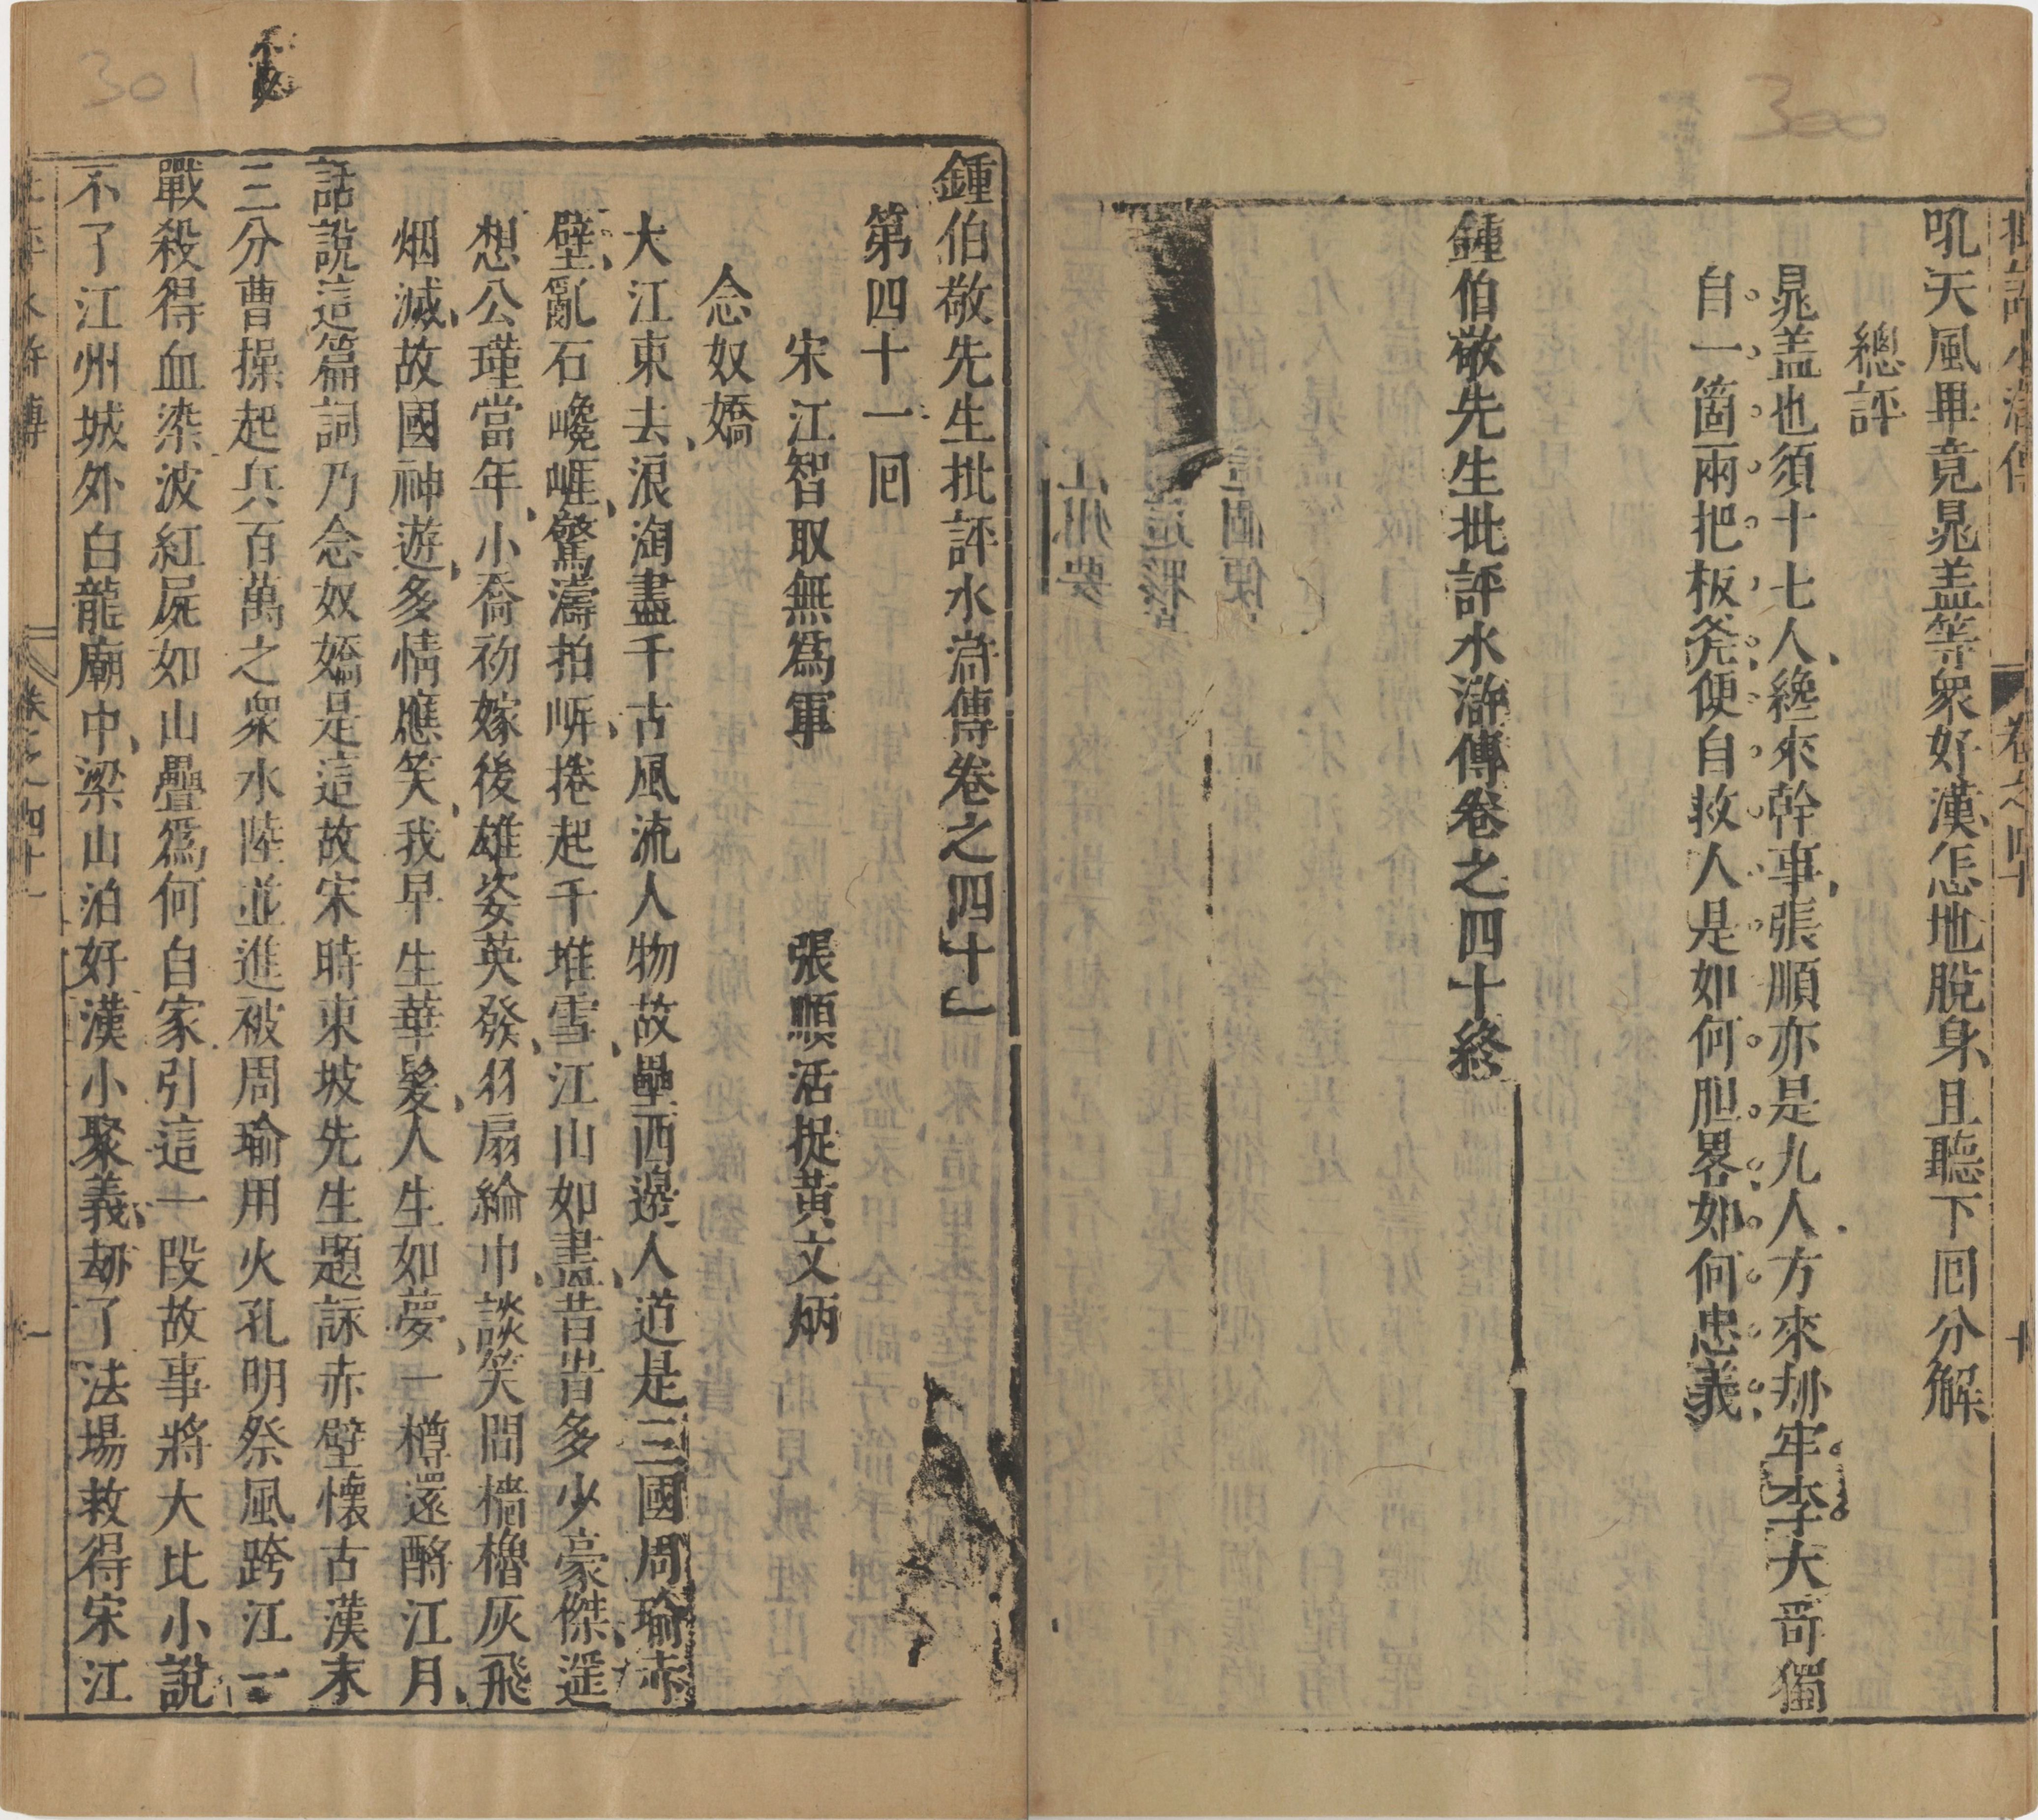 300
吼天風畢竟晁盖等衆好漢怎地脫身且聽下囘分解
總評
晁盖也須十七人纔來幹事張順亦是九人方來刼牢李大哥獨
自一箇兩把板斧便自救人是如何胆畧如何忠義
鍾伯敬先生批評水滸傳卷之四十終
301
鍾伯敬先生批評水滸傳卷之四十一
第四十一囘
宋江智取無爲軍 張順活捉黃文炳
念奴嬌
大江東去浪淘盡千古風流人物故壘西邊人道是三國周瑜赤
壁亂石巉崕驚濤拍岍捲起千堆雪江山如畫昔昔多少豪傑遥
想公瑾當年小喬初嫁後雄姿英發羽扇綸巾談笑間檣櫓灰飛
烟滅故國神遊多情應笑我早生華髮人生如夢一樽還酹江月
話說這篇詞乃念奴嬌是這故宋時東坡先生題詠赤壁懷古漢末
三分曹操起兵百萬之衆水陸並進被周瑜用火孔明祭風跨江一
戰殺得血染波紅屍如山疊爲何自家引這一段故事將大比小說
不了江州城外白龍廟中梁山泊好漢小聚義刼了法場救得宋江